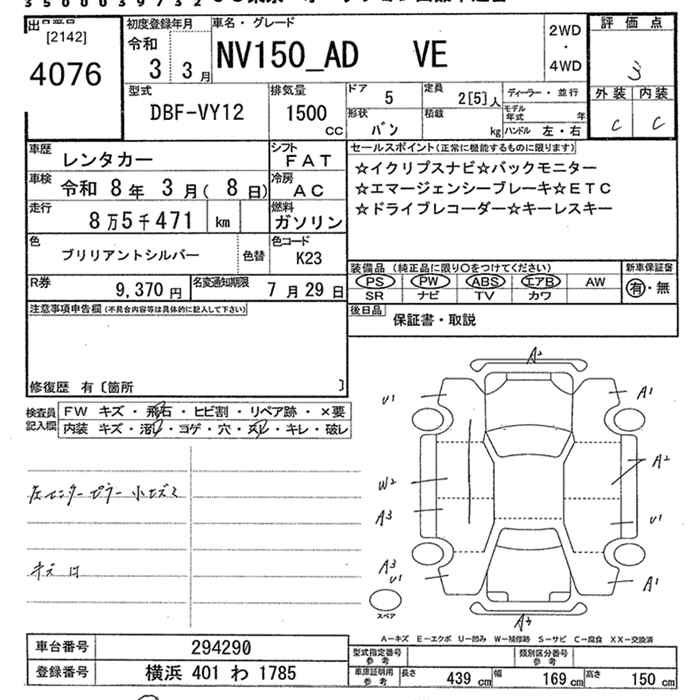 3500039732
[2142]
4076
初度登録年月
令和
3 3月
車名・グレード
NV150_AD VE
2WD
・
4WD
評価点
3
外装 内装
C C
型式
DBF-VY12
排気量
1500
CC
ドア
5
定員
2[5]人
形状
バン
積載
kg
ディーラー・並行
モデル年式 年
ハンドル 左・右
車歴 レンタカー
シフト FAT
車検 令和 8年 3月( 8日)
冷房 AC
走行 8万5千471 km
燃料 ガソリン
色 ブリリアントシルバー
色替
色コード K23
R券 9,370円
名変通知期限 7月29日
セールスポイント(正常に機能するものに限ります)
☆イクリプスナビ☆バックモニター
☆エマージェンシーブレーキ☆ETC
☆ドライブレコーダー☆キーレスキー
装備品(純正品に限り○をつけてください)
PS PW ABS エアB AW
SR ナビ TV カワ
新車保証書
有・無
後日品
保証書・取説
注意事項申告欄(不具合内容等は具体的に記入して下さい)
修復歴 有〔箇所 〕
検査員記入欄
FW キズ・飛石・ヒビ割・リペア跡・×要
内装 キズ・汚・コゲ・穴・・キレ・破レ
左センターピラー小キズミ
A2
U1
A1
W2
A2
A3
U1
A3
U1
A1
A3
スペア
A-キズ E-エクボ U-凹み W-補修跡 S-サビ C-腐食 XX-交換済
車台番号 294290
登録番号 横浜 401 わ 1785
型式指定番号 参考
類別区分番号 参考
車庫証明用 参考
長さ 439cm 幅 169cm 高さ 150cm